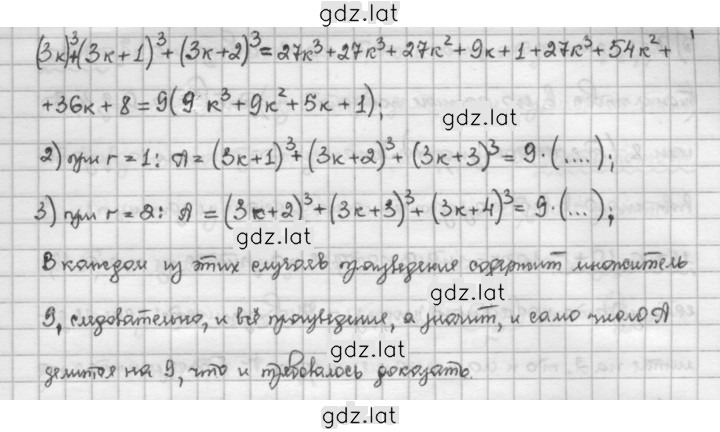 gdz.lat
(3к)³+(3к+1)³+(3к+2)³=27к³+27к³+27к²+9к+1+27к³+54к²+
+36к+8=9(9к³+9к²+5к+1);
gdz.lat
2) при r=1: A=(3к+1)³+(3к+2)³+(3к+3)³=9·(....);
3) при r=2: A=(3к+2)³+(3к+3)³+(3к+4)³=9·(...);
gdz.lat
В каждом из этих случаев произведение содержит множитель
gdz.lat
9, следовательно, и всё произведение, а значит, и само число A
gdz.lat
делится на 9, что и требовалось доказать.
gdz.lat